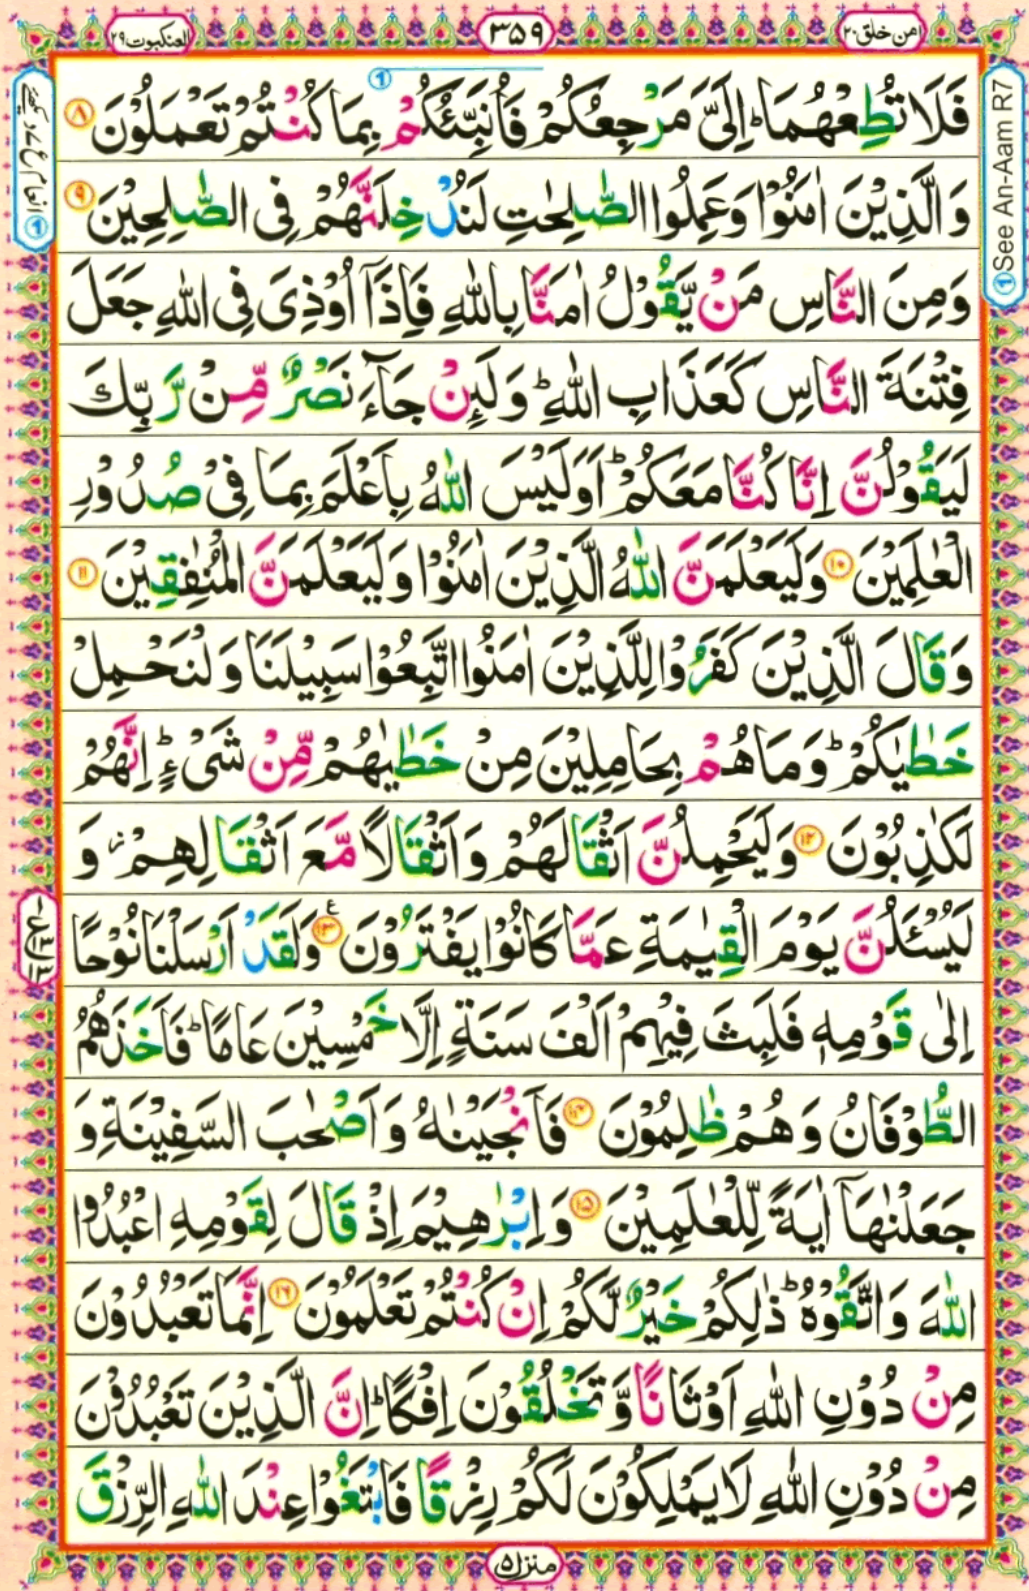 امن خلق ٢٠
٣٥٩
العنكبوت ٢٩
فَلَا تُطِعْهُمَا ؕ اِلَىَّ مَرْجِعُكُمْ فَاُنَبِّئُكُمْ بِمَا كُنْتُمْ تَعْمَلُوْنَ ٨
وَالَّذِيْنَ اٰمَنُوْا وَعَمِلُوا الصّٰلِحٰتِ لَنُدْخِلَنَّهُمْ فِى الصّٰلِحِيْنَ ٩
وَمِنَ النَّاسِ مَنْ يَّقُوْلُ اٰمَنَّا بِاللّٰهِ فَاِذَاۤ اُوْذِىَ فِى اللّٰهِ جَعَلَ
فِتْنَةَ النَّاسِ كَعَذَابِ اللّٰهِ ؕ وَلَئِنْ جَآءَ نَصْرٌ مِّنْ رَّبِّكَ
لَيَقُوْلُنَّ اِنَّا كُنَّا مَعَكُمْ ؕ اَوَلَيْسَ اللّٰهُ بِاَعْلَمَ بِمَا فِىْ صُدُوْرِ
الْعٰلَمِيْنَ ١٠ وَلَيَعْلَمَنَّ اللّٰهُ الَّذِيْنَ اٰمَنُوْا وَلَيَعْلَمَنَّ الْمُنٰفِقِيْنَ ١١
وَقَالَ الَّذِيْنَ كَفَرُوْا لِلَّذِيْنَ اٰمَنُوا اتَّبِعُوْا سَبِيْلَنَا وَلْنَحْمِلْ
خَطٰيٰكُمْ ؕ وَمَا هُمْ بِحَامِلِيْنَ مِنْ خَطٰيٰهُمْ مِّنْ شَىْءٍ ؕ اِنَّهُمْ
لَكٰذِبُوْنَ ١٢ وَلَيَحْمِلُنَّ اَثْقَالَهُمْ وَاَثْقَالًا مَّعَ اَثْقَالِهِمْ ز وَ
لَيُسْئَلُنَّ يَوْمَ الْقِيٰمَةِ عَمَّا كَانُوْا يَفْتَرُوْنَ ١٣ ع وَلَقَدْ اَرْسَلْنَا نُوْحًا
اِلٰى قَوْمِهٖ فَلَبِثَ فِيْهِمْ اَلْفَ سَنَةٍ اِلَّا خَمْسِيْنَ عَامًا ؕ فَاَخَذَهُمُ
الطُّوْفَانُ وَهُمْ ظٰلِمُوْنَ ١٤ فَاَنْجَيْنٰهُ وَاَصْحٰبَ السَّفِيْنَةِ وَ
جَعَلْنٰهَاۤ اٰيَةً لِّلْعٰلَمِيْنَ ١٥ وَاِبْرٰهِيْمَ اِذْ قَالَ لِقَوْمِهِ اعْبُدُوا
اللّٰهَ وَاتَّقُوْهُ ؕ ذٰلِكُمْ خَيْرٌ لَّكُمْ اِنْ كُنْتُمْ تَعْلَمُوْنَ ١٦ اِنَّمَا تَعْبُدُوْنَ
مِنْ دُوْنِ اللّٰهِ اَوْثَانًا وَّتَخْلُقُوْنَ اِفْكًا ؕ اِنَّ الَّذِيْنَ تَعْبُدُوْنَ
مِنْ دُوْنِ اللّٰهِ لَا يَمْلِكُوْنَ لَكُمْ رِزْقًا فَابْتَغُوْا عِنْدَ اللّٰهِ الرِّزْقَ
منزل ٥
① See An-Aam R7